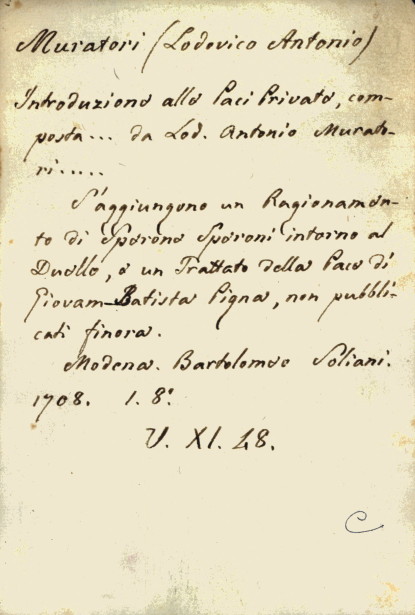 Muratori (Lodovico Antonio)
Introduzione alle Paci Private, com-
posta... da Lod. Antonio Murato-
ri.....
S'aggiungono un Ragionamen-
to di Sperone Speroni intorno al
Duello, e un Trattato della Pace di
Giovam-Batista Pigna, non pubbli-
cati finora.
Modena. Bartolomeo Soliani.
1708. 1. 8.°
V. XI. 48.
C